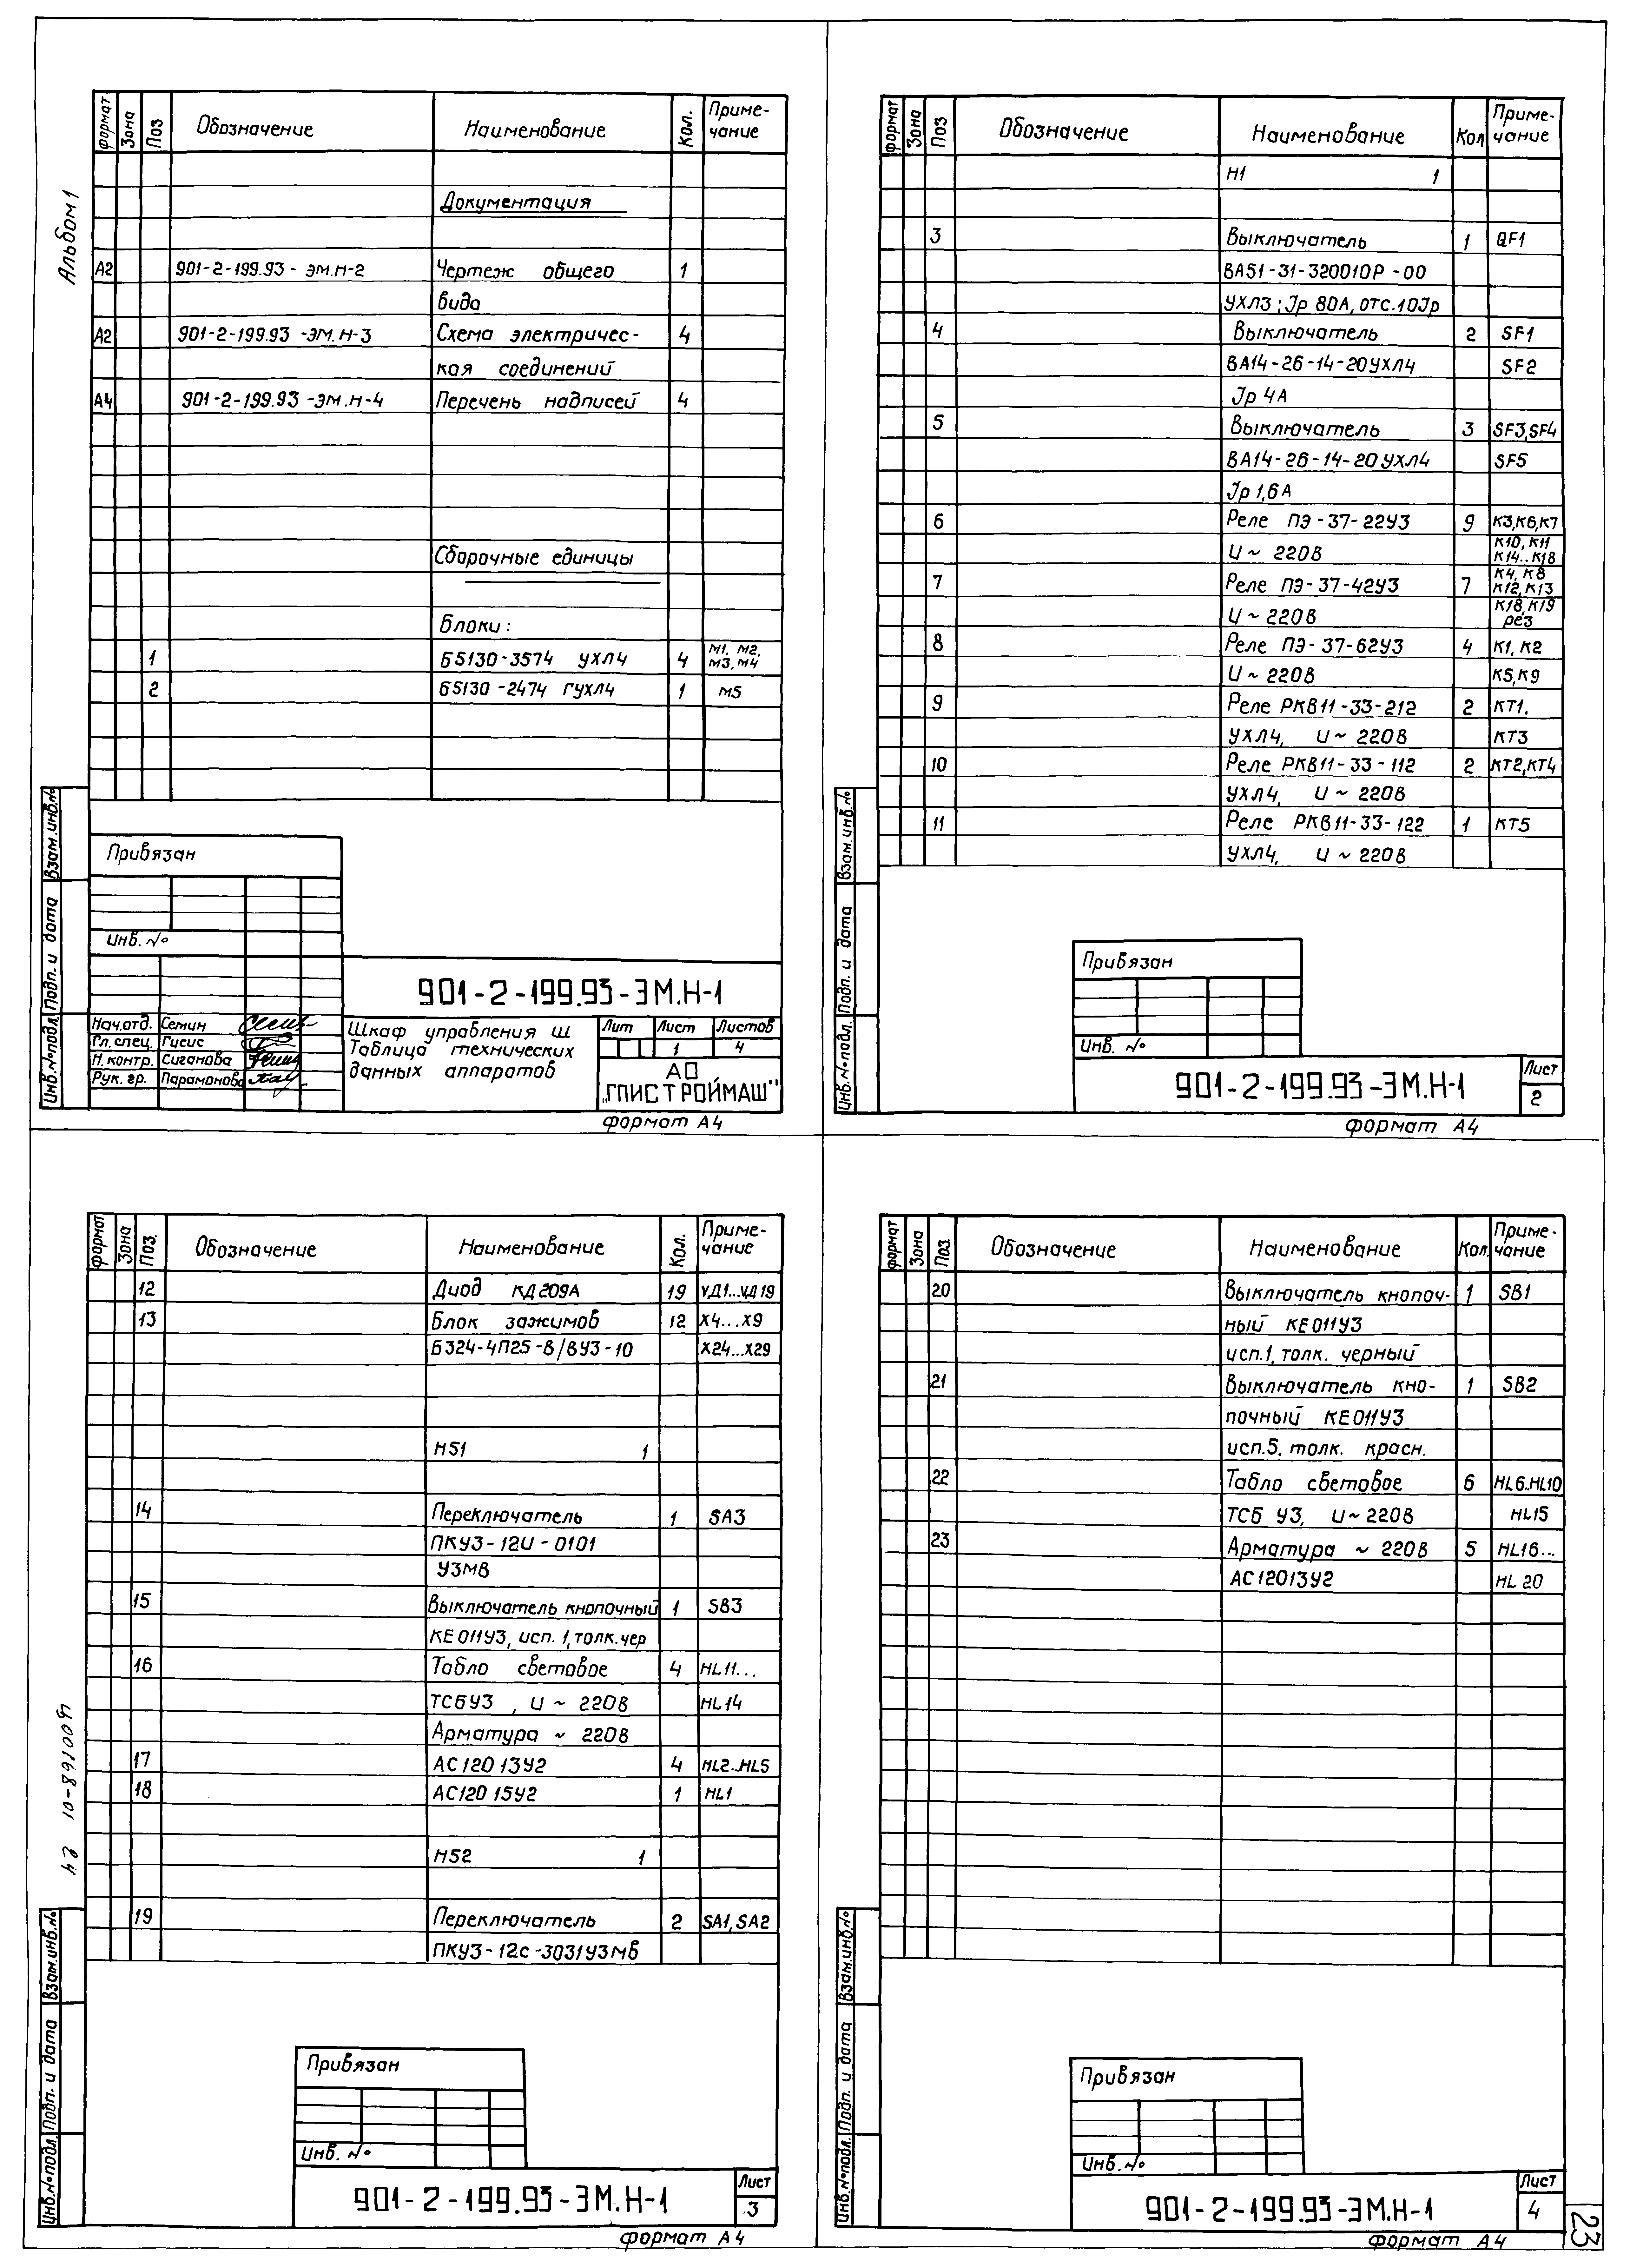 Альбом 1
формат Зона Поз Обозначение Наименование Кол. Приме-
чание
Документация
А2 901-2-199.93 - ЭМ.Н-2 Чертеж общего 1
вида
А2 901-2-199.93 -ЭМ.Н-3 Схема электричес- 4
кая соединений
А4 901-2-199.93 -ЭМ.Н-4 Перечень надписей 4
Сборочные единицы
Блоки:
1 Б5130-3574 УХЛ4 4 М1, М2,
М3, М4
2 Б5130-2474 ГУХЛ4 1 М5
Привязан
Инв. №
901-2-199.93-ЭМ.Н-1
Нач.отд. Семин
Гл. спец. Гусис
Н. контр. Сиганова
Рук. гр. Парамонова
Шкаф управления Ш
Таблица технических
данных аппаратов
Лит Лист Листов
1 4
АО
„ГПИСТРОЙМАШ"
Взам.инв.№
Подп. и дата
Инв.№подл.
формат А4
формат Зона Поз Обозначение Наименование Кол Приме-
чание
Н1 1
3 Выключатель 1 QF1
ВА51-31-320010Р-00
УХЛ3; Iр 80А, отс.10Iр
4 Выключатель 2 SF1
ВА14-26-14-20УХЛ4 SF2
Iр 4А
5 Выключатель 3 SF3,SF4
ВА14-26-14-20УХЛ4 SF5
Iр 1,6А
6 Реле ПЭ-37-22У3 9 К3,К6,К7
U ~ 220В К10, К11
К14..К18
7 Реле ПЭ-37-42У3 7 К4, К8
К12, К13
U ~ 220В К18, К19
рез
8 Реле ПЭ-37-62У3 4 К1, К2
U ~ 220В К5,К9
9 Реле РКВ11-33-212 2 КТ1,
УХЛ4, U ~ 220В КТ3
10 Реле РКВ11-33-112 2 КТ2,КТ4
УХЛ4, U ~ 220В
11 Реле РКВ11-33-122 1 КТ5
УХЛ4, U ~ 220В
Привязан
Инв. №
901-2-199.93-ЭМ.Н-1 Лист
2
Взам.инв.№
Подп. и дата
Инв.№подл.
формат А4
формат Зона Поз. Обозначение Наименование Кол. Приме-
чание
12 Диод КД209А 19 VД1...VД19
13 Блок зажимов 12 Х4...Х9
Б324-4П25-В/ВУ3-10 Х24...Х29
Н51 1
14 Переключатель 1 SA3
ПКУ3-12И-0101
У3МВ
15 Выключатель кнопочный 1 SB3
КЕ011У3, исп. 1, толк.чер
16 Табло световое 4 HL11...
ТСБУ3, U ~ 220В HL14
Арматура ~ 220В
17 АС12013У2 4 HL2..HL5
18 АС12015У2 1 HL1
Н52 1
19 Переключатель 2 SA1, SA2
ПКУ3-12с-3031У3МВ
Привязан
Инв. №
901-2-199.93-ЭМ.Н-1 Лист
3
Взам.инв.№
Подп. и дата
Инв.№подл.
формат А4
600168-01 24
формат Зона Поз Обозначение Наименование Кол. Приме-
чание
20 Выключатель кнопоч- 1 SB1
ный КЕ011У3
исп.1, толк. черный
21 Выключатель кно- 1 SB2
почный КЕ011У3
исп.5. толк. красн.
22 Табло световое 6 HL6..HL10
ТСБ У3, U~220В HL15
23 Арматура ~ 220В 5 HL16...
АС12013У2 HL20
Привязан
Инв. №
901-2-199.93-ЭМ.Н-1 Лист
4
Взам.инв.№
Подп. и дата
Инв.№подл.
формат А4
23